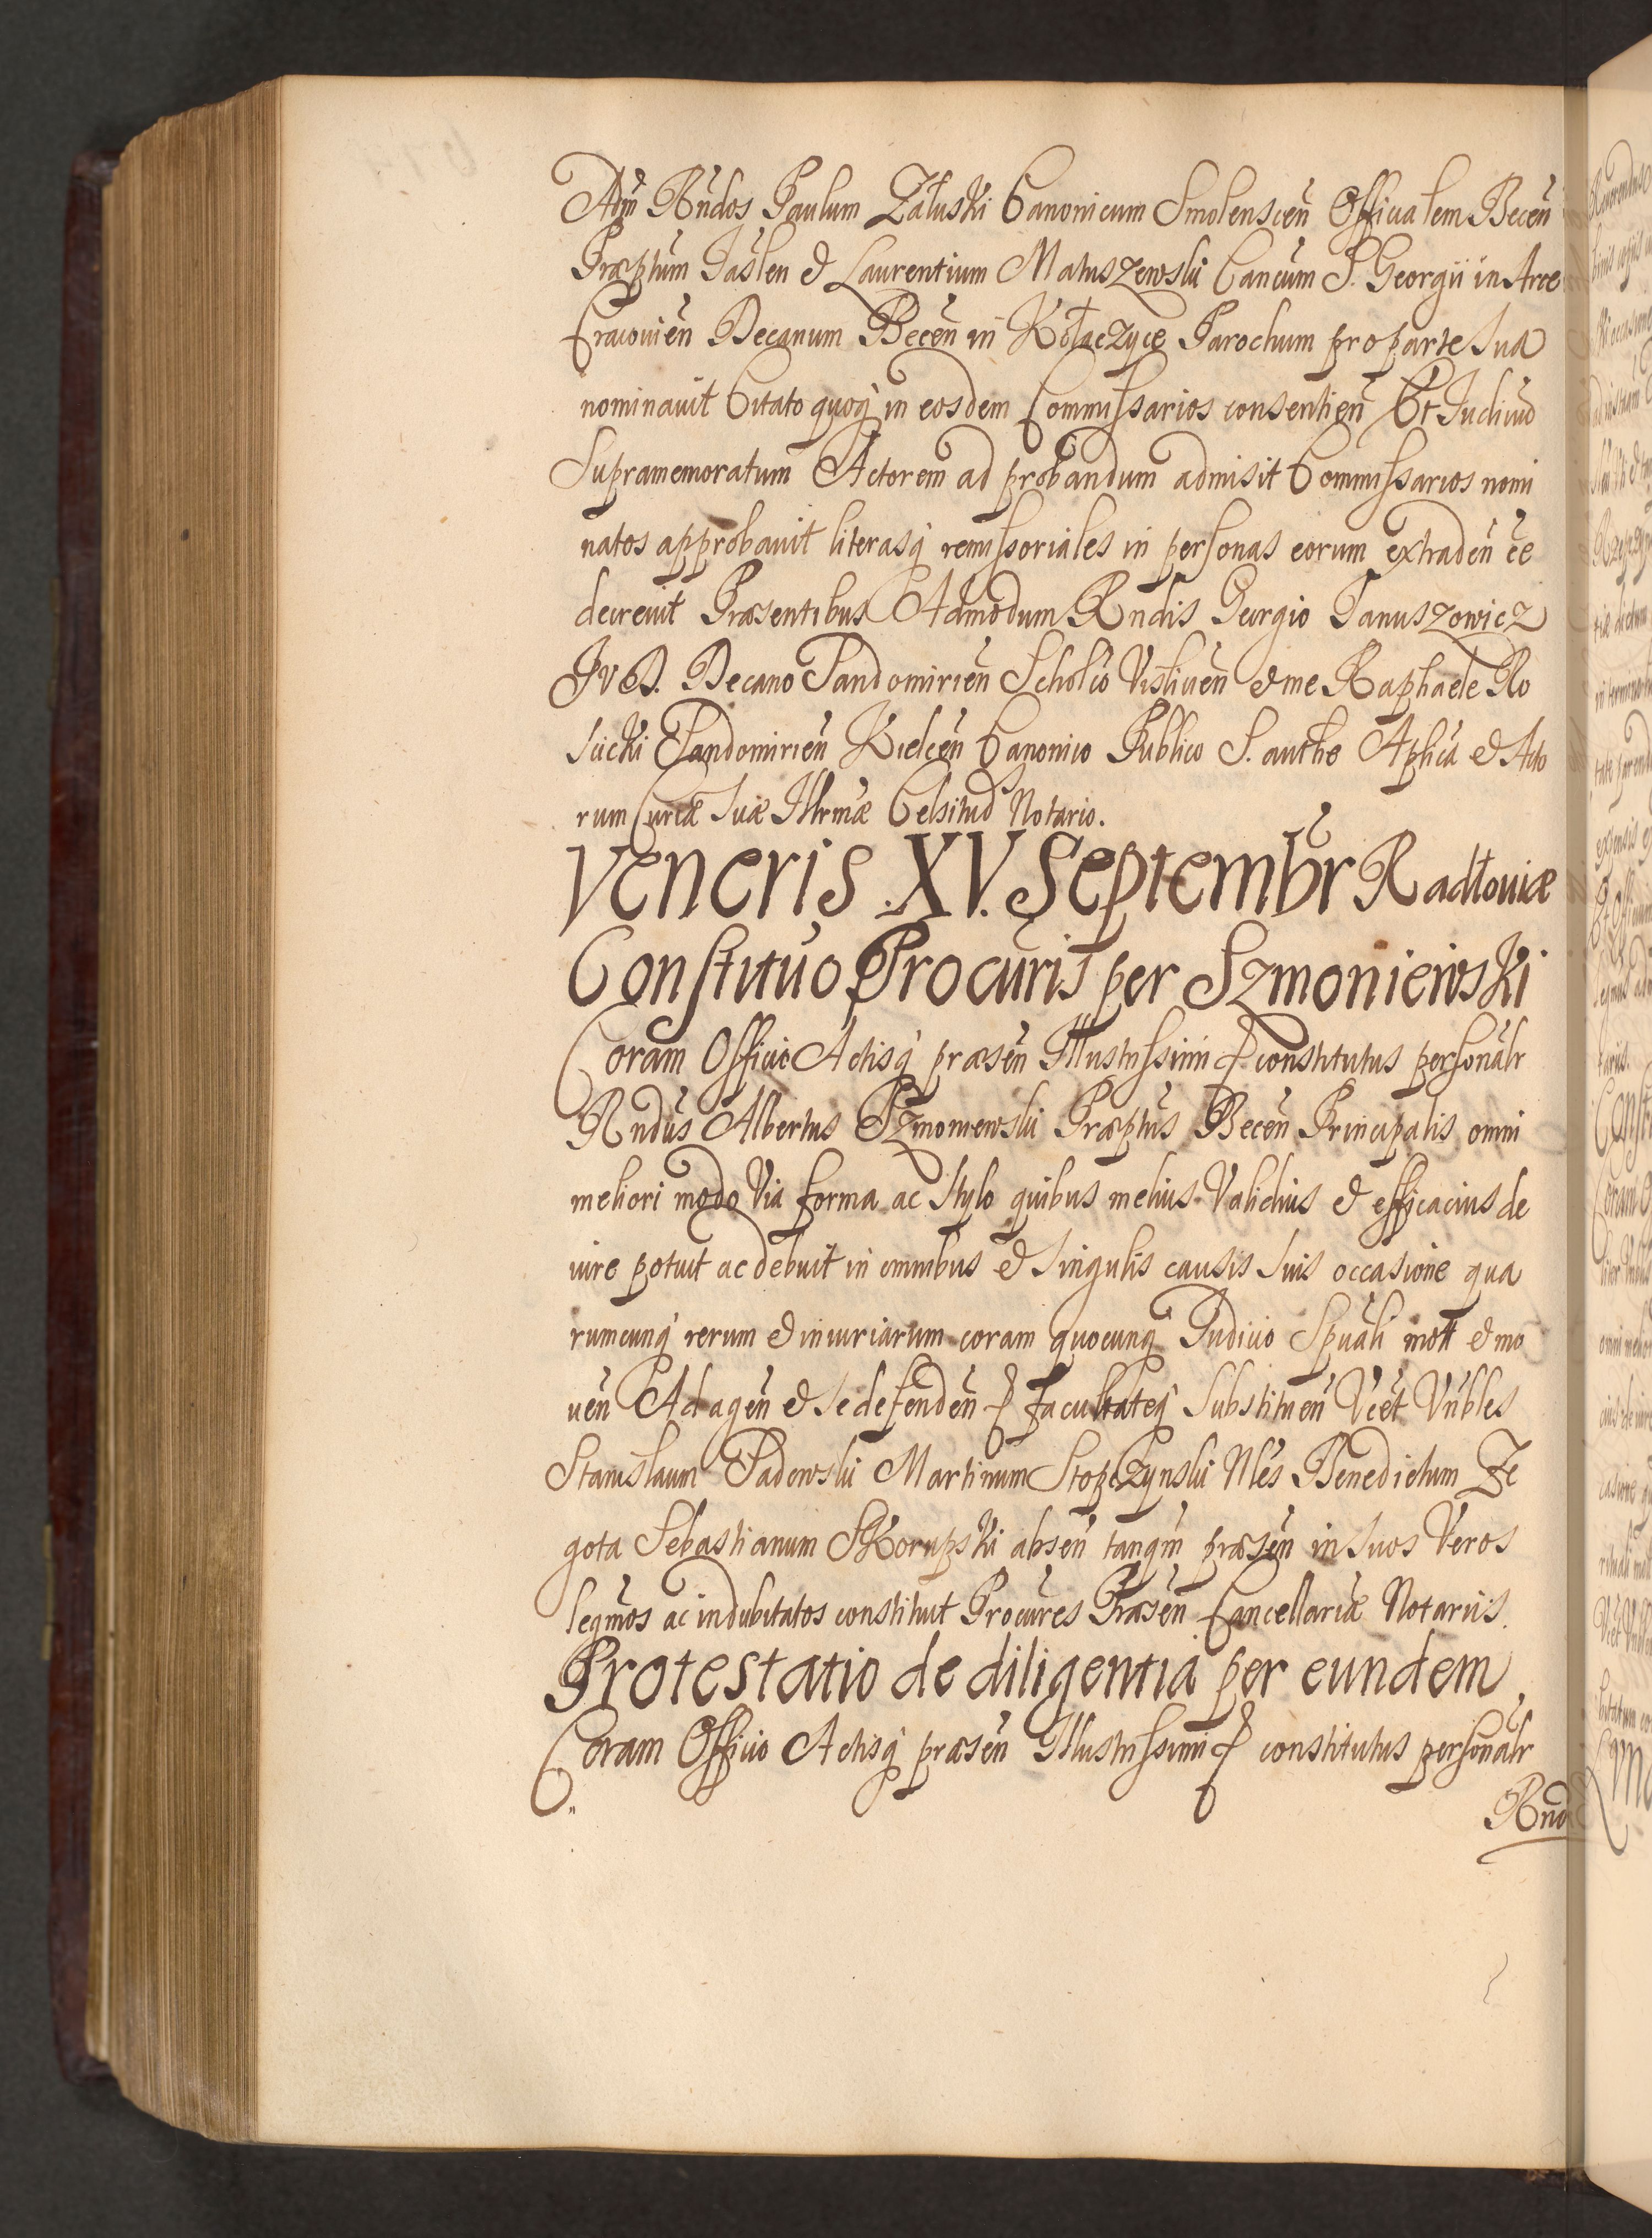 Adm̃ Rñdos Paulum Załuski Canonicum Smolenscen̄ Officialem Becen̄
Præptum Jaslen & Laurentium Matuszewski Cancum S. Georgii in Arce
Cracovien̄ Decanum Becen̄ in Kołaczyce Parochum pro parte sua
nominavit Citato quoq́ in eosdem Commissarios consentien̄ Et Judiciũ
Supramemoratum Actorem ad probandum admisit Commissarios nomi
natos approbavit literasq́ remissoriales in personas eorum extraden̄ ee
decrevit Præsentibus Admodum Rndis Georgio Januszowicz
JVD. Decano Sandomirien̄ Scholco Vislicen̄ & me Raphaele Ro
sicki Sandomirien̄ Kielcen̄ Canonico Publico S. authe Aplica & Acto
rum Curiæ suæ Illrmæ Celsitud Notario.
Veneris .XV. Septembr Radłoviæ
Constituo Procuris per Szmoniewski
Coram Officio Actisq́ præsen̄ Illustrissimi & constitutus personalr
Rndus Albertus Szmoniewski Præptus Becen̄ Principalis omni
meliori modo Via forma ac stylo quibus melius Validius & efficacius de
iure potuit ac debuit in omnibus & singulis causis suis occasione qua
rumcunq́ rerum & iniuriarum coram quocunq́ Judicio Spuali mott & mo
ven̄ Ad agen̄ & se defenden̄ & facultateq́ substituen̄ Vcet Vnbles
Stanislaum Sadowski Martinum Stopczynski Nles Benedictum Ze
gota Sebastianum SKorupski absen̄ tanqm̄ præsen̄ in suos Veros
legmos ac indubitatos constituit Procures Præsen̄ Cancellariæ Notariis.
Protestatio de diligentia per eundem
Coram Officio Actisq́ præsen̄ Illustrissimi & constitutus personalr
Rnd